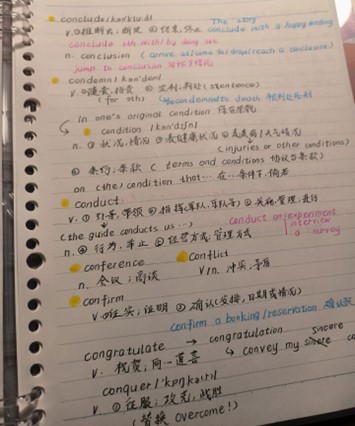 conclude/kənˈkluːd/
v. ①推断出;断定 ②结束,终止 The story conclude with a happy ending
conclude sth with/by doing sth
n. conclusion (arrive at/come to/draw/reach a conclusion)
jump to conclusion
condemn/kənˈdem/
v. ①谴责,指责 ②宣判,判处 (sentence)
(for sth) condemned to death
in one's original condition
condition /kənˈdɪʃn/
n. ①状况,情况 ②健康状况 天气情况
(injuries or other conditions)
条约;条款 (terms and conditions 协议条款)
on (the) condition that… 在…条件下,倘若
conduct
v. ①引导,带领 ②指挥(军队,乐队等) ③实施,管理,进行
(the guide conducts us…) conduct an experiment
interview
a survey
n. ④行为,举止 ⑤经营方式,管理方式
conference conflict
n. 会议;商谈 v/n. 冲突,矛盾
confirm
v. ①证实,证明 ②确认(安排,日期或情况)
confirm a booking/reservation 确认
congratulate → congratulation sincere
v. 祝贺,向…道喜 convey my sincere
conquer/ˈkɒŋkə(r)/
v. ①征服;攻克,战胜
(替换 overcome!)